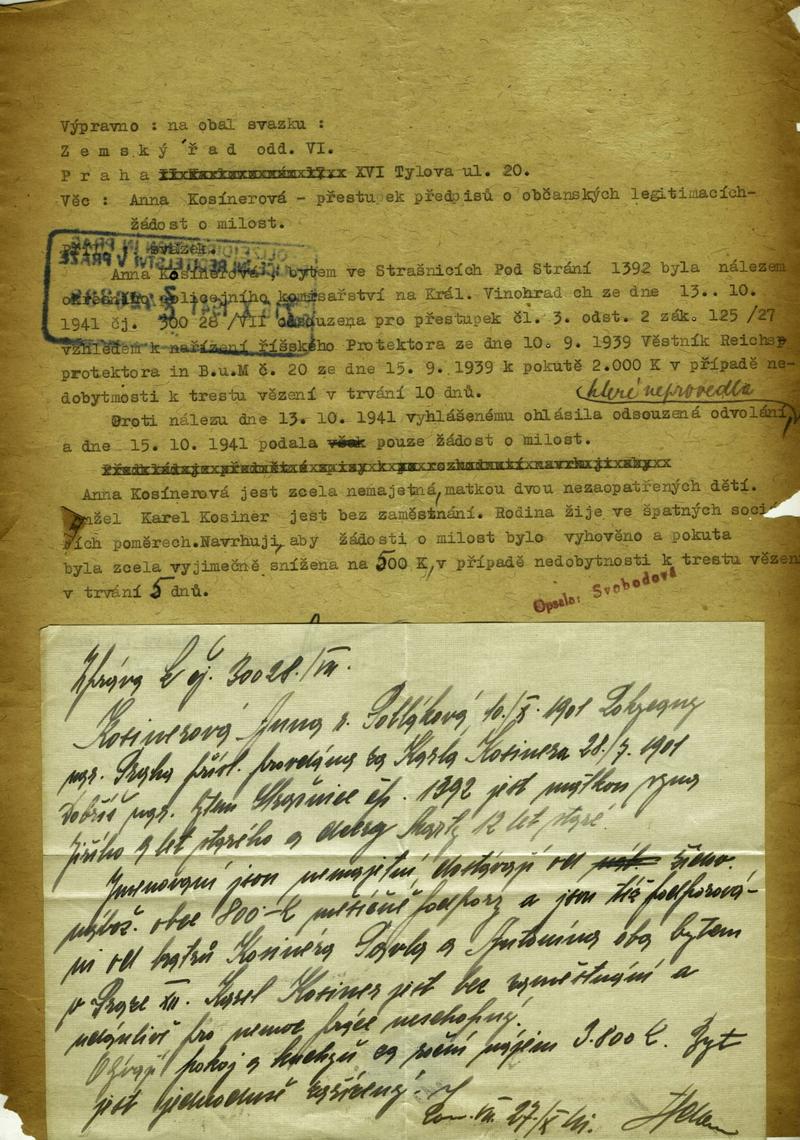 Výpravno : na obal svazku :
Z e m s k ý ř a d odd. VI.
P r a h a XVI Tylova ul. 20.
Věc : Anna Kosínerová - přestupek předpisů o občanských legitimacích-
žádost o milost.
svazek.
Anna Kosínerová, bytem ve Strašnicích Pod Strání 1392 byla nálezem
policejního komisařství na Král. Vinohrad ch ze dne 13.. 10.
1941 čj. 300 28 /VII odsouzena pro přestupek čl. 3. odst. 2 zák. 125 /27
vzhledem k nařízení říšského Protektora ze dne 10. 9. 1939 Věstník Reichsp
protektora in B.u.M č. 20 ze dne 15. 9. 1939 k pokutě 2.000 K v případě ne-
dobytmosti k trestu vězení v trvání 10 dnů.
které neprovedla
Proti nálezu dne 13. 10. 1941 vyhlášenému ohlásila odsouzená odvolání,
a dne 15. 10. 1941 podala však pouze žádost o milost.
Anna Kosínerová jest zcela nemajetná, matkou dvou nezaopatřených dětí.
Karel Kosiner jest bez zaměstnání. Rodina žije ve špatných soci
ích poměrech.Navrhuji, aby žádosti o milost bylo vyhověno a pokuta
byla zcela vyjimečně snížena na 500 K, v případě nedobytnosti k trestu vězen
v trvání 5 dnů.
Opsala: Svobodová
Zpráva k čj. 30028./VII.
Kosinerová Anna r. Polláková, 10./X. 1901
Praha přísl. provdaná za Karla Kosinera 28./7. 1901
Dobříš Strašnice čp. 1392 jest matkou syna
Jiřího 9 let starého a dcery 12 let staré.
Jmenovaní jsou nemajetní, dostávají od židov.
nábož. obce 800 K měsíčně podpory a jsou též podporová-
ni od bratrů Kosinera Pavla a Antonína oba bytem
v Praze XII. Karel Kosiner jest bez zaměstnání a
údánlivě pro nemoc práce neschopný.
Obývají pokoj a kuchyň za roční nájem 3.800 K. Byt
jest jednoduše zařízený.
27./X.